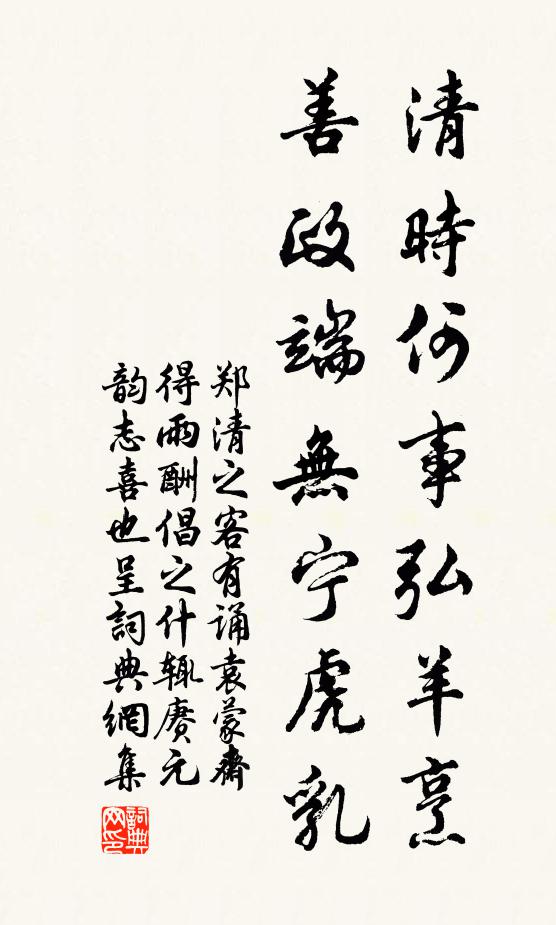 清時何事弘羊烹
善政端無宁虎乳
郑清之客有诵袁蒙斋
得雨酬倡之什辄赓元
韵志喜也呈詞典網集
詞典网印